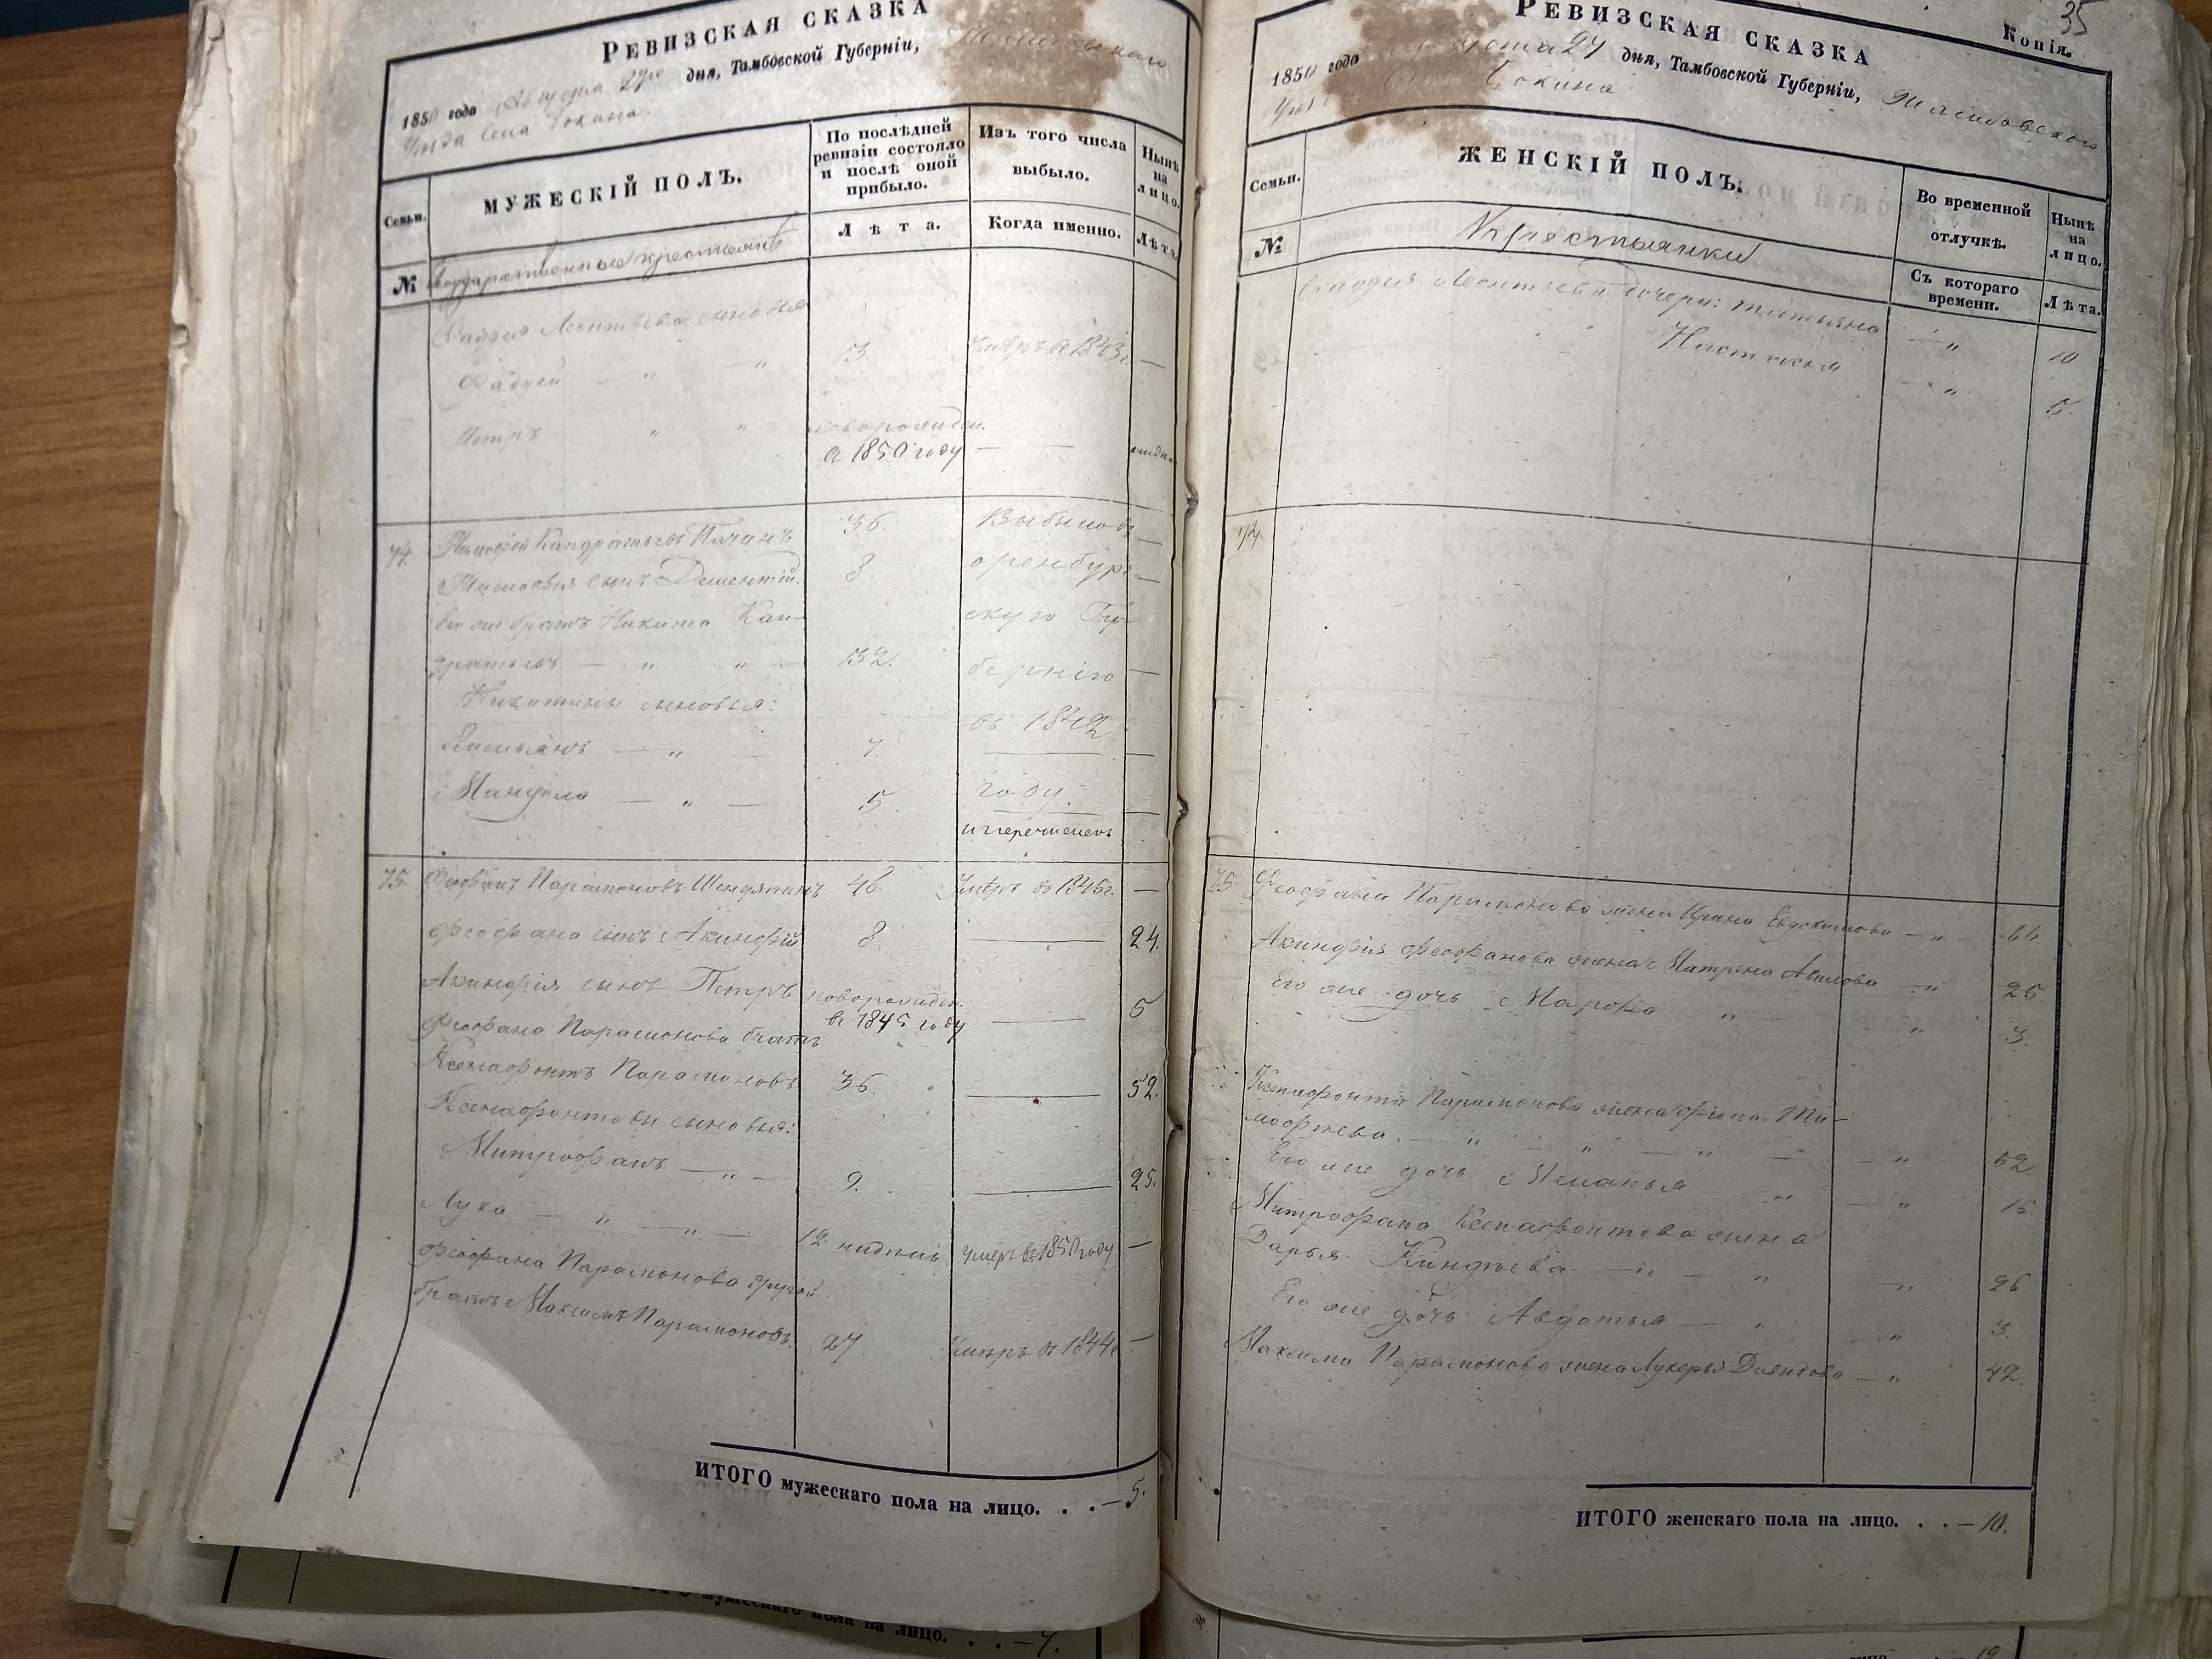 РЕВИЗСКАЯ СКАЗКА
1850 года Августа 27го дня, Тамбовской Губерніи,
Уезда Села
Семьи.
МУЖЕСКІЙ ПОЛЪ.
По послѣдней ревизіи состояло и послѣ оной прибыло.
Изъ того числа выбыло.
Нынѣ на лицо.
№
Лѣта.
Когда именно.
Лѣта.
Государственные крестьяне
Фадея Леонтьева сыновья
Фадей — " — " 13. Умеръ въ 1843 г. —
Петръ " " новорожден.
в 1850 году — недѣл
74. Тимофей Кандратьевъ 36. Выбыло въ —
Тимофея сынъ Дементій. 8. оренбург —
его же братъ Никита Кан-
скую Гу-
дратьевъ — " " — 132. бернію —
Никитины сыновья:
въ 1842
Емельянъ — " — 7. —
Мануйла — " — 5. году. —
и перечислен
75. Феофанъ Парамоновъ 48. Умеръ въ 1845 г. —
Феофана сынъ Акинфій 8. — 24.
Акинфія сынъ Петръ новорожден.
в 1845 году — 5
Феофана Парамонова братъ
Ксенафонтъ Парамоновъ 36. — 52.
Ксенафонтовы сыновья:
Митрофанъ — " — 9. — 25.
Лука — " — " — 12 недель умеръ въ 1850 году —
Феофана Парамонова другой
братъ Максимъ Парамоновъ. 27 Умеръ въ 1844 г —
ИТОГО мужескаго пола на лицо. . . — 5.
35
Копія.
РЕВИЗСКАЯ СКАЗКА
1850 года Августа 27 дня, Тамбовской Губерніи,
Семьи.
ЖЕНСКІЙ ПОЛЪ.
Во временной отлучкѣ.
Нынѣ на лицо.
№
Крестьянки
Съ котораго времени.
Лѣта.
Фаддея Леонтьева дочери: Татьяна — " 10
Настасья — " 5.
74
75 Феофана Парамонова жена Ирина Евдокимова — " 66.
Акинфія Феофанова жена Матрена — " 25.
Его же дочь Марфа — " — " 3.
Ксенафонта Парамонова жена Ти-
мофеева. — " " — " — " 52
Его же дочь Меланья " " 15
Митрофана Ксенафонтова жена
Дарья — " — " " 26
Его же дочь Авдотья — " — " 3.
Максима Парамонова жена Лукерья Давидова — " 42.
ИТОГО женскаго пола на лицо. . . — 10.